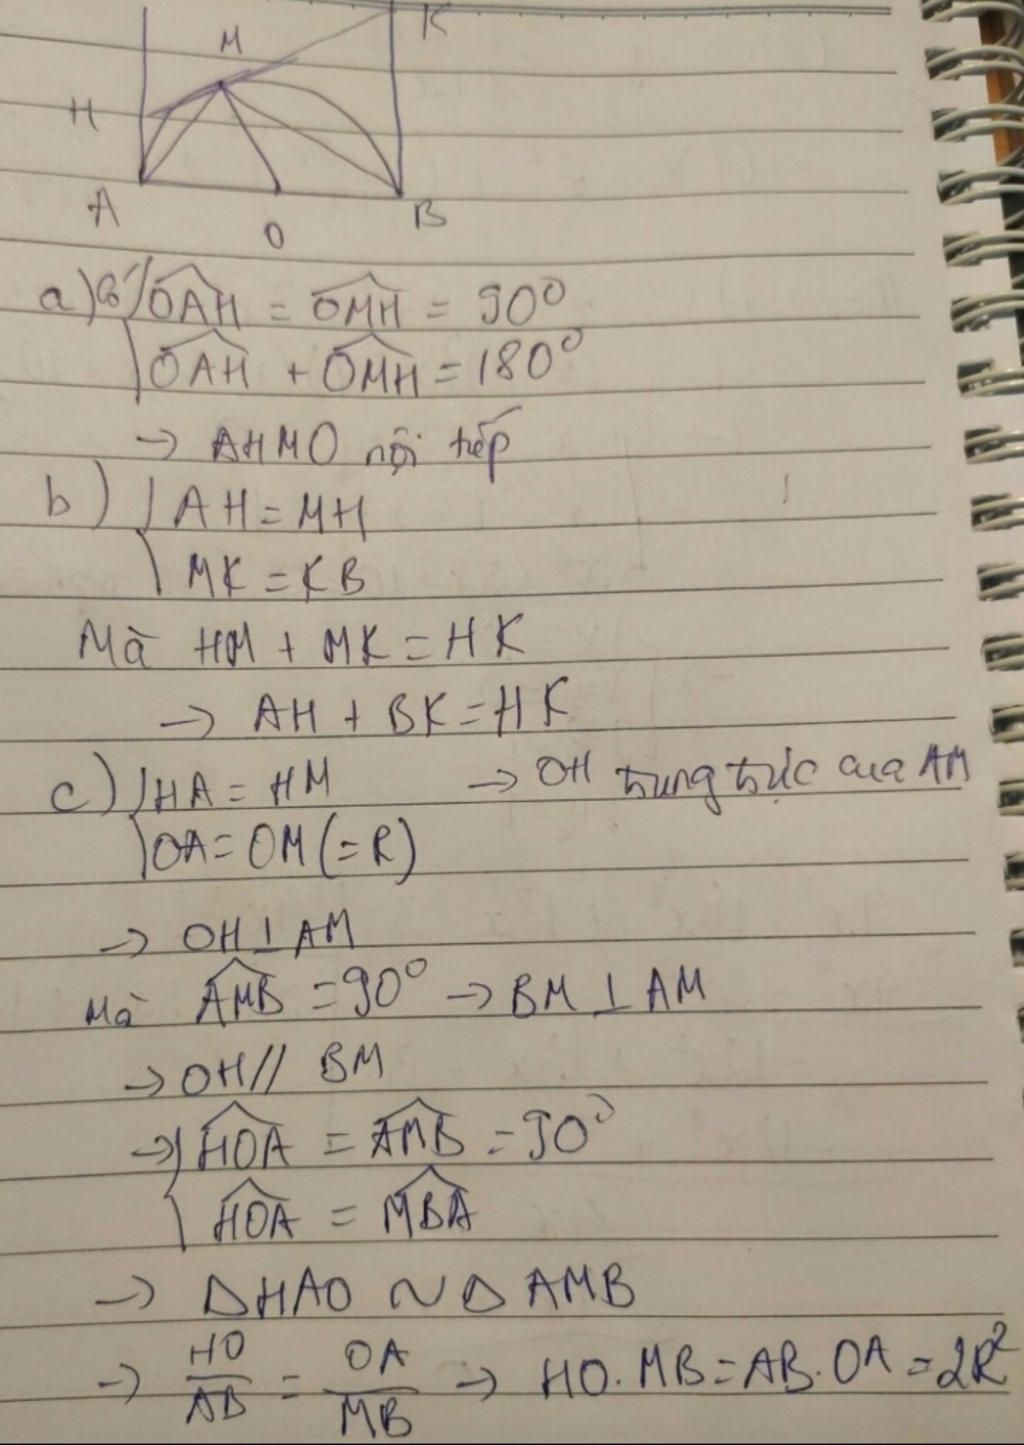 K
M
H
A
O
B
a) Có { \widehat{OAH} = \widehat{OMH} = 90°
\widehat{OAH} + \widehat{OMH} = 180°
→ AHMO nội tiếp
b) { AH = MH
MK = KB
Mà HM + MK = HK
→ AH + BK = HK
c) { HA = HM → OH trung trực của AM
OA = OM (= R)
→ OH ⊥ AM
Mà \widehat{AMB} = 90° → BM ⊥ AM
→ OH // BM
→ { \widehat{HOA} = \widehat{AMB} = 90°
\widehat{HOA} = \widehat{MBA}
→ ΔHAO ∼ Δ AMB
→ \frac{HO}{AB} = \frac{OA}{MB} → HO. MB = AB. OA = 2R²